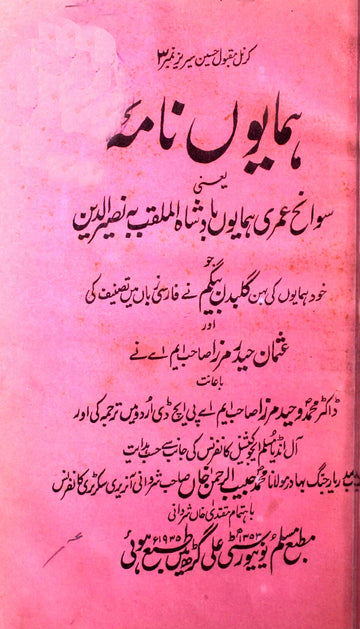 کرنل مقبول حسین سیریز نمبر ۳
ہمایوں نامہ
یعنی
سوانح عمری ہمایوں بادشاہ الملقب بہ نصیر الدین
جو
خود ہمایوں کی بہن گلبدن بیگم نے فارسی زبان میں تصنیف کی
اور
عثمان حیدر مرزا صاحب ایم اے نے
باعانت
ڈاکٹر محمد وحید مرزا صاحب ایم اے پی ایچ ڈی اردو میں ترجمہ کی اور
آل انڈیا مسلم ایجوکیشنل کانفرنس کی جانب سے حسب ہدایت
یار جنگ بہادر مولانا محمد حبیب الرحمن خاں صاحب شروانی آنریری سکرٹری کانفرنس
باہتمام مقتدیٰ خاں شروانی
مطبع مسلم یونیورسٹی علی گڑھ میں طبع ہوئی
۱۳۵۳ھ ۱۹۳۵ء